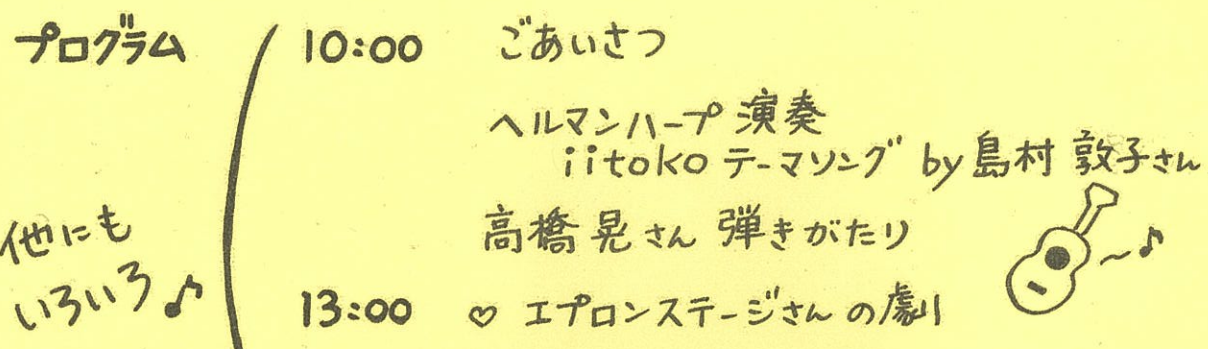 プログラム
10:00 ごあいさつ
ヘルマンハープ 演奏
iitoko テーマソング by 島村 敦子さん
高橋 晃さん 弾きがたり
13:00 ♡ エプロンステージさんの劇
他にも
いろいろ♪